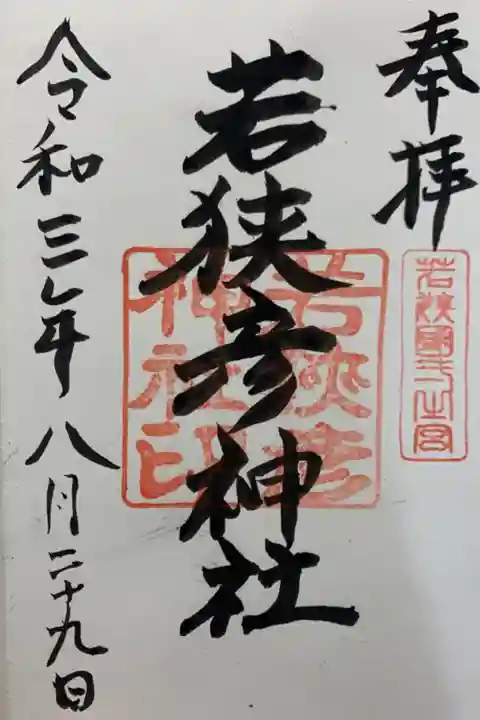 奉拝
若狭國一之宮
若狭彦神社
若狭彦
神社印
令和三年八月二十九日